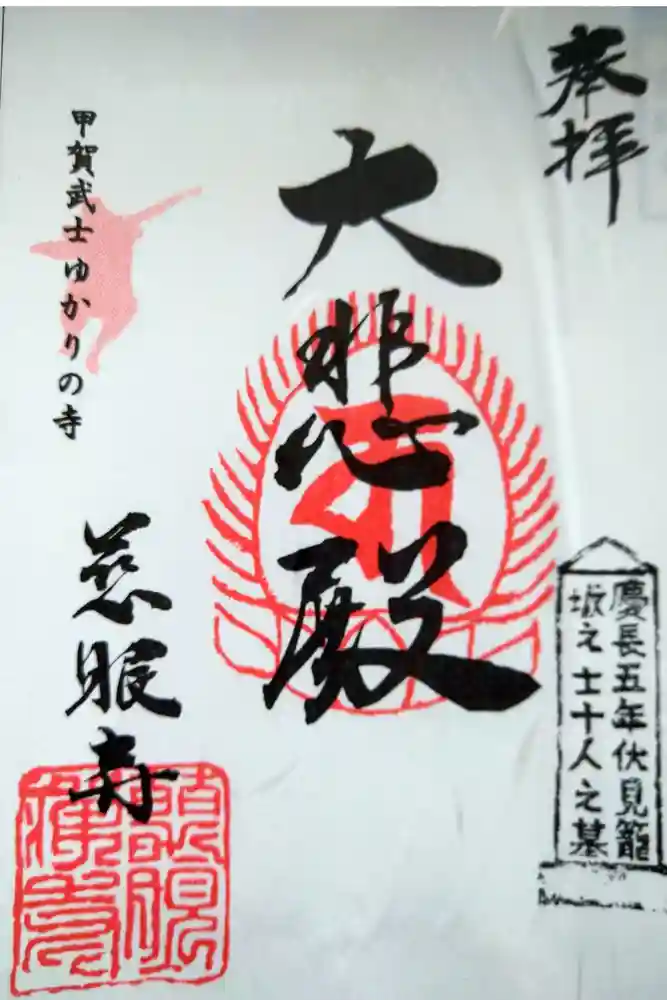 奉拝
大悲殿
甲賀武士ゆかりの寺
慈眼寺
慶長五年伏見籠
城之士十人之墓